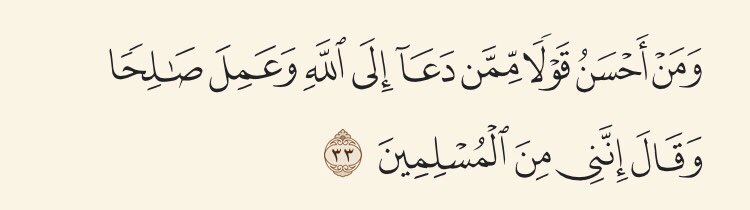 وَمَنْ أَحْسَنُ قَوْلًا مِّمَّن دَعَآ إِلَى ٱللَّهِ وَعَمِلَ صَـٰلِحًا
وَقَالَ إِنَّنِى مِنَ ٱلْمُسْلِمِينَ ٣٣